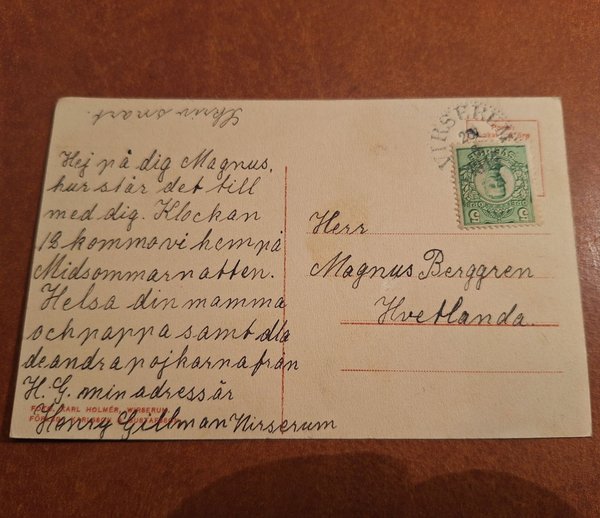 Skriv snart.
Hej på dig Magnus,
hur står det till
med dig. Klockan
12 komma vi hem på
Midsommarnatten.
Helsa din mamma
och pappa samt alla
de andra pojkarna från
H. G. min adress är
Henry Gillman Virserum
FOTO. KARL HOLMÉR, VIRSERUM
VIRSERUM
5
5
Herr
Magnus Berggren
Hvetlanda.